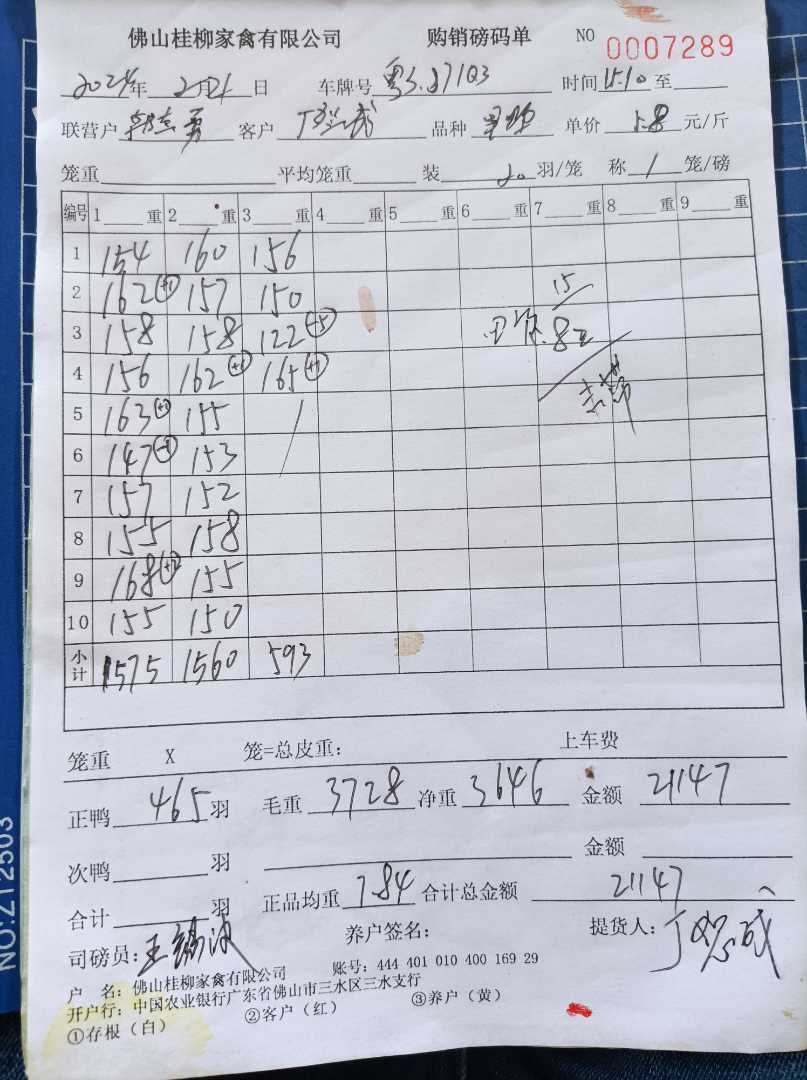 佛山桂柳家禽有限公司 购销磅码单 NO 0007289
2024年 2月21日 车牌号 时间 15:10 至
联营户 客户 品种 单价 5.8 元/斤
笼重 平均笼重 装 20 羽/笼 称 1 笼/磅
编号 1 重 2 重 3 重 4 重 5 重 6 重 7 重 8 重 9 重
1 154 160 156
2 162 (+1) 157 150 15
3 158 158 122 (-5)
4 156 162 (+1) 165 (+1)
5 163 (+1) 155
6 147 (-1) 153
7 157 152
8 155 158
9 168 (+2) 155
10 155 150
小计 1575 1560 593
笼重 X 笼=总皮重: 上车费
正鸭 465 羽 毛重 3728 净重 3646 金额 21147
次鸭 羽 金额
合计 羽 正品均重 7.84 合计总金额 21147
司磅员: 养户签名: 提货人:
户 名: 佛山桂柳家禽有限公司 账号: 444 401 010 400 169 29
开户行: 中国农业银行广东省佛山市三水区三水支行
①存根（白） ②客户（红） ③养户（黄）
NO:ZT2503